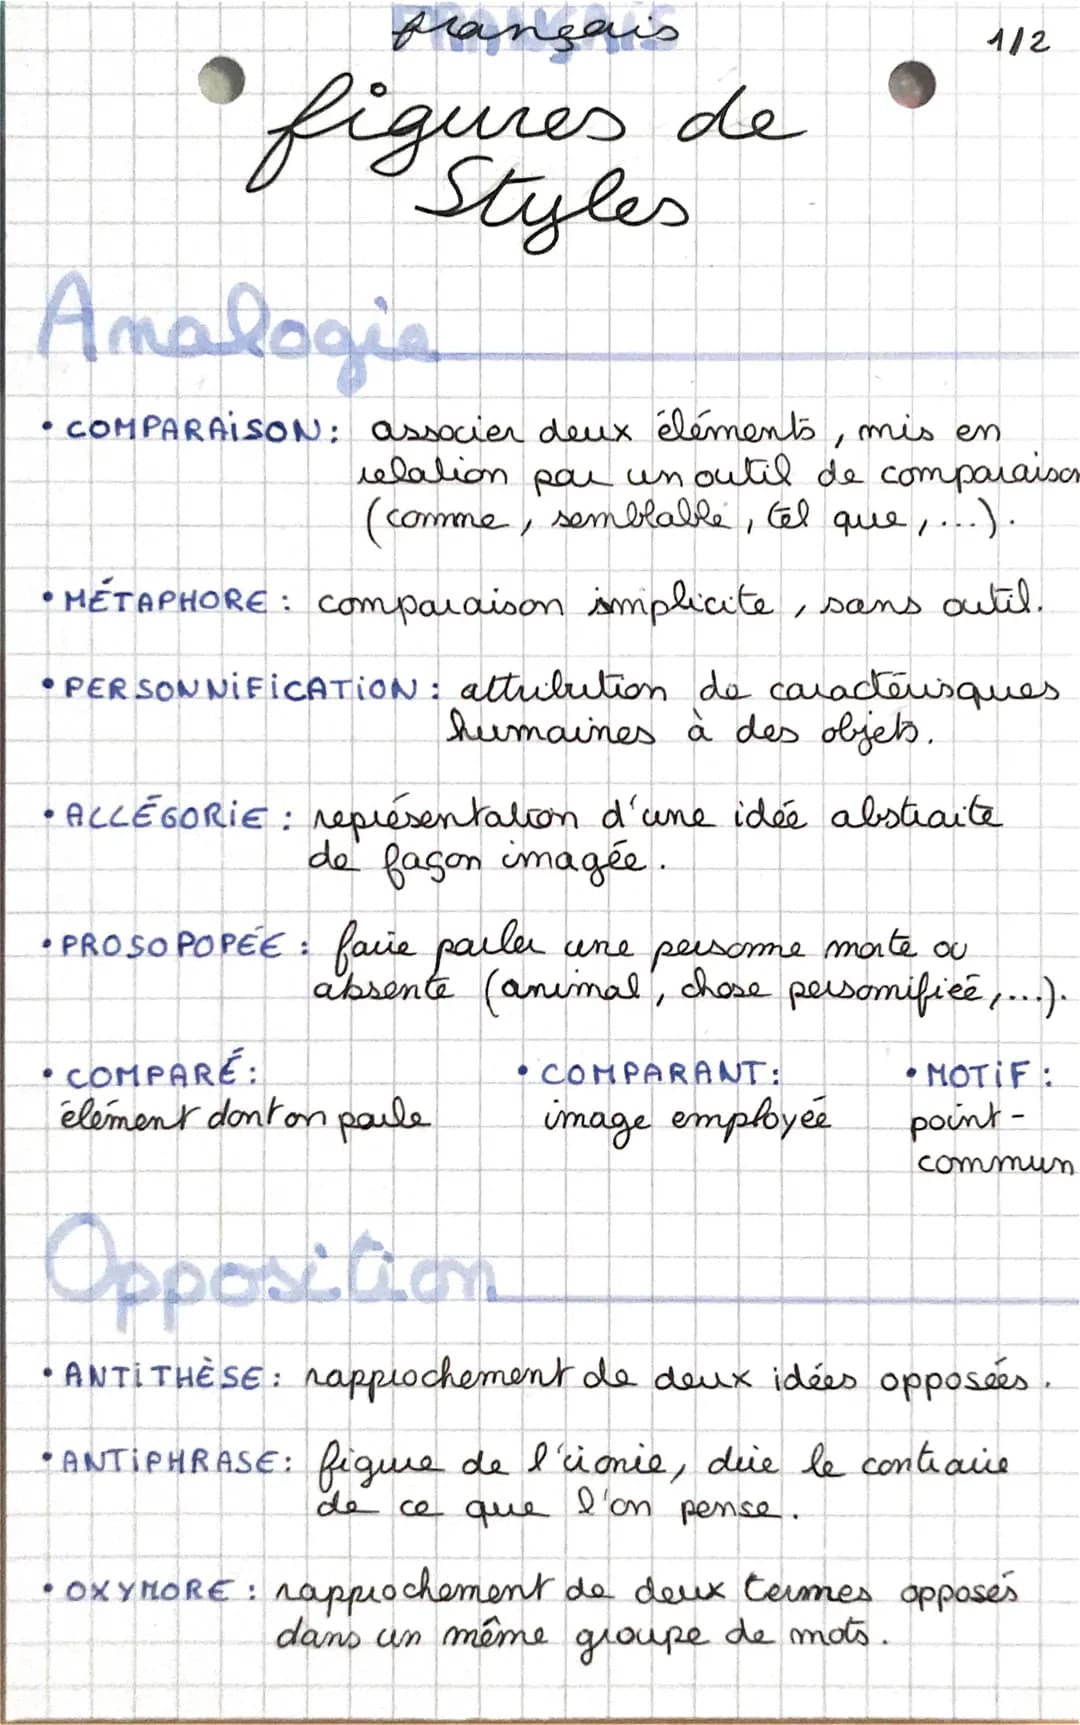 français
1/2
figures de
Styles
Analogie
• COMPARAISON : associer deux éléments, mis en
relation par un outil de comparaison
(comme, semblable, tel que, ...).
• MÉTAPHORE : comparaison implicite, sans outil.
• PERSONNIFICATION : attribution de caractérisques
humaines à des objets.
• ALLÉGORIE : représentation d'une idée abstraite
de façon imagée.
• PROSOPOPÉE : faire parler une personne morte ou
absente (animal, chose personifiée, ...).
• COMPARÉ : • COMPARANT : • MOTIF :
élément dont on parle image employée point-
commun
Opposition
• ANTITHÈSE : rapprochement de deux idées opposées.
• ANTIPHRASE : figure de l'ironie, dire le contraire
de ce que l'on pense.
• OXYMORE : rapprochement de deux termes opposés
dans un même groupe de mots.